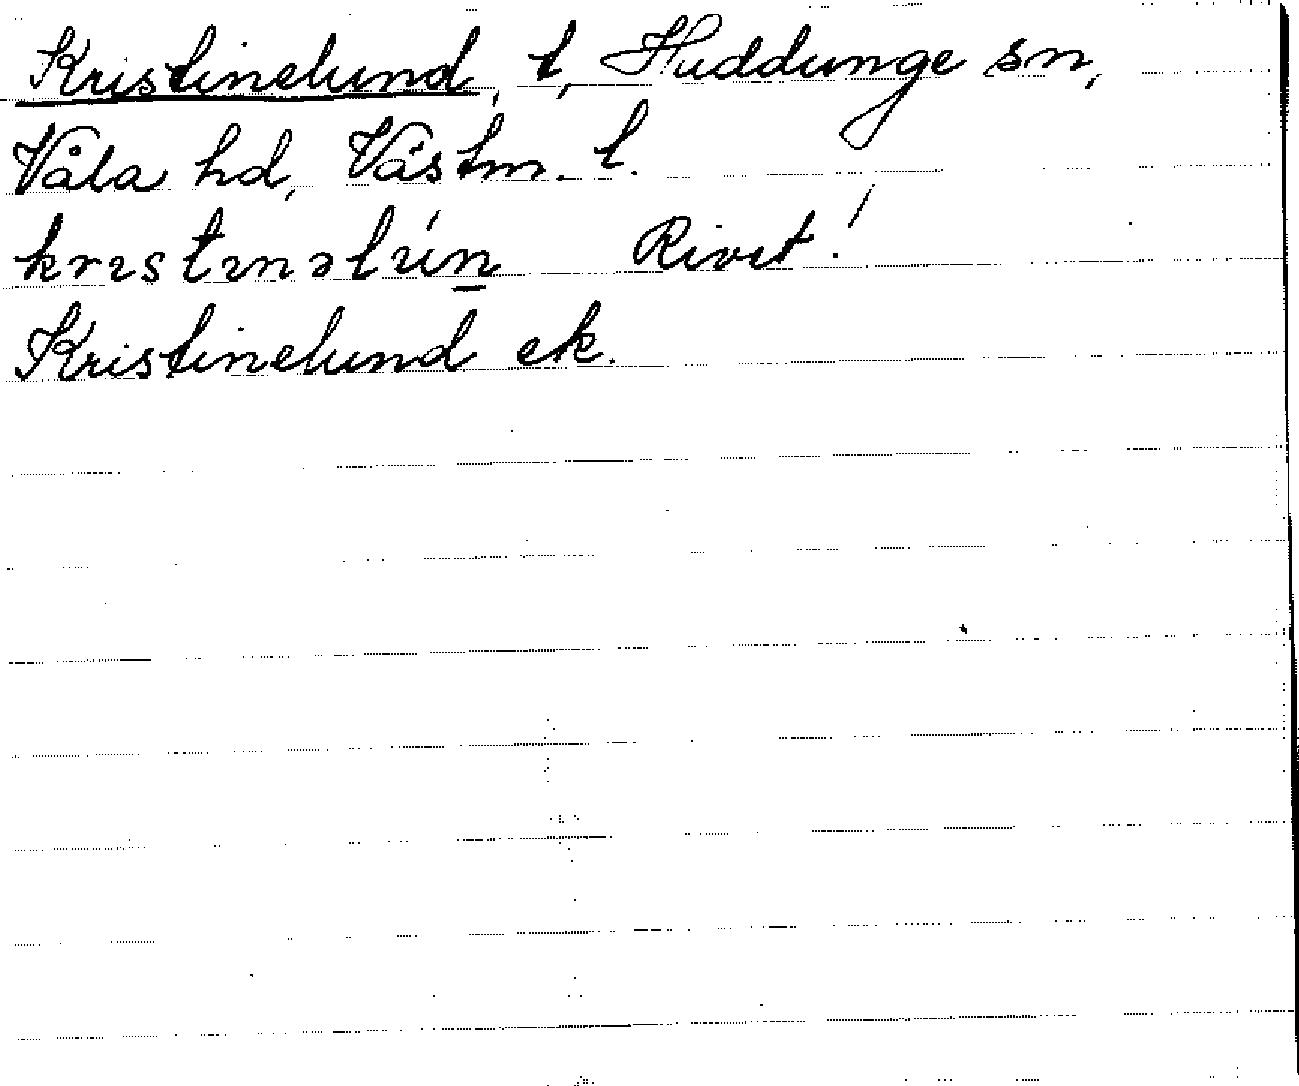 Kristinelund, t, Huddunge sn,
Våla hd, Västm. l.
krıstınəlún Rivet!
Kristinelund ek.